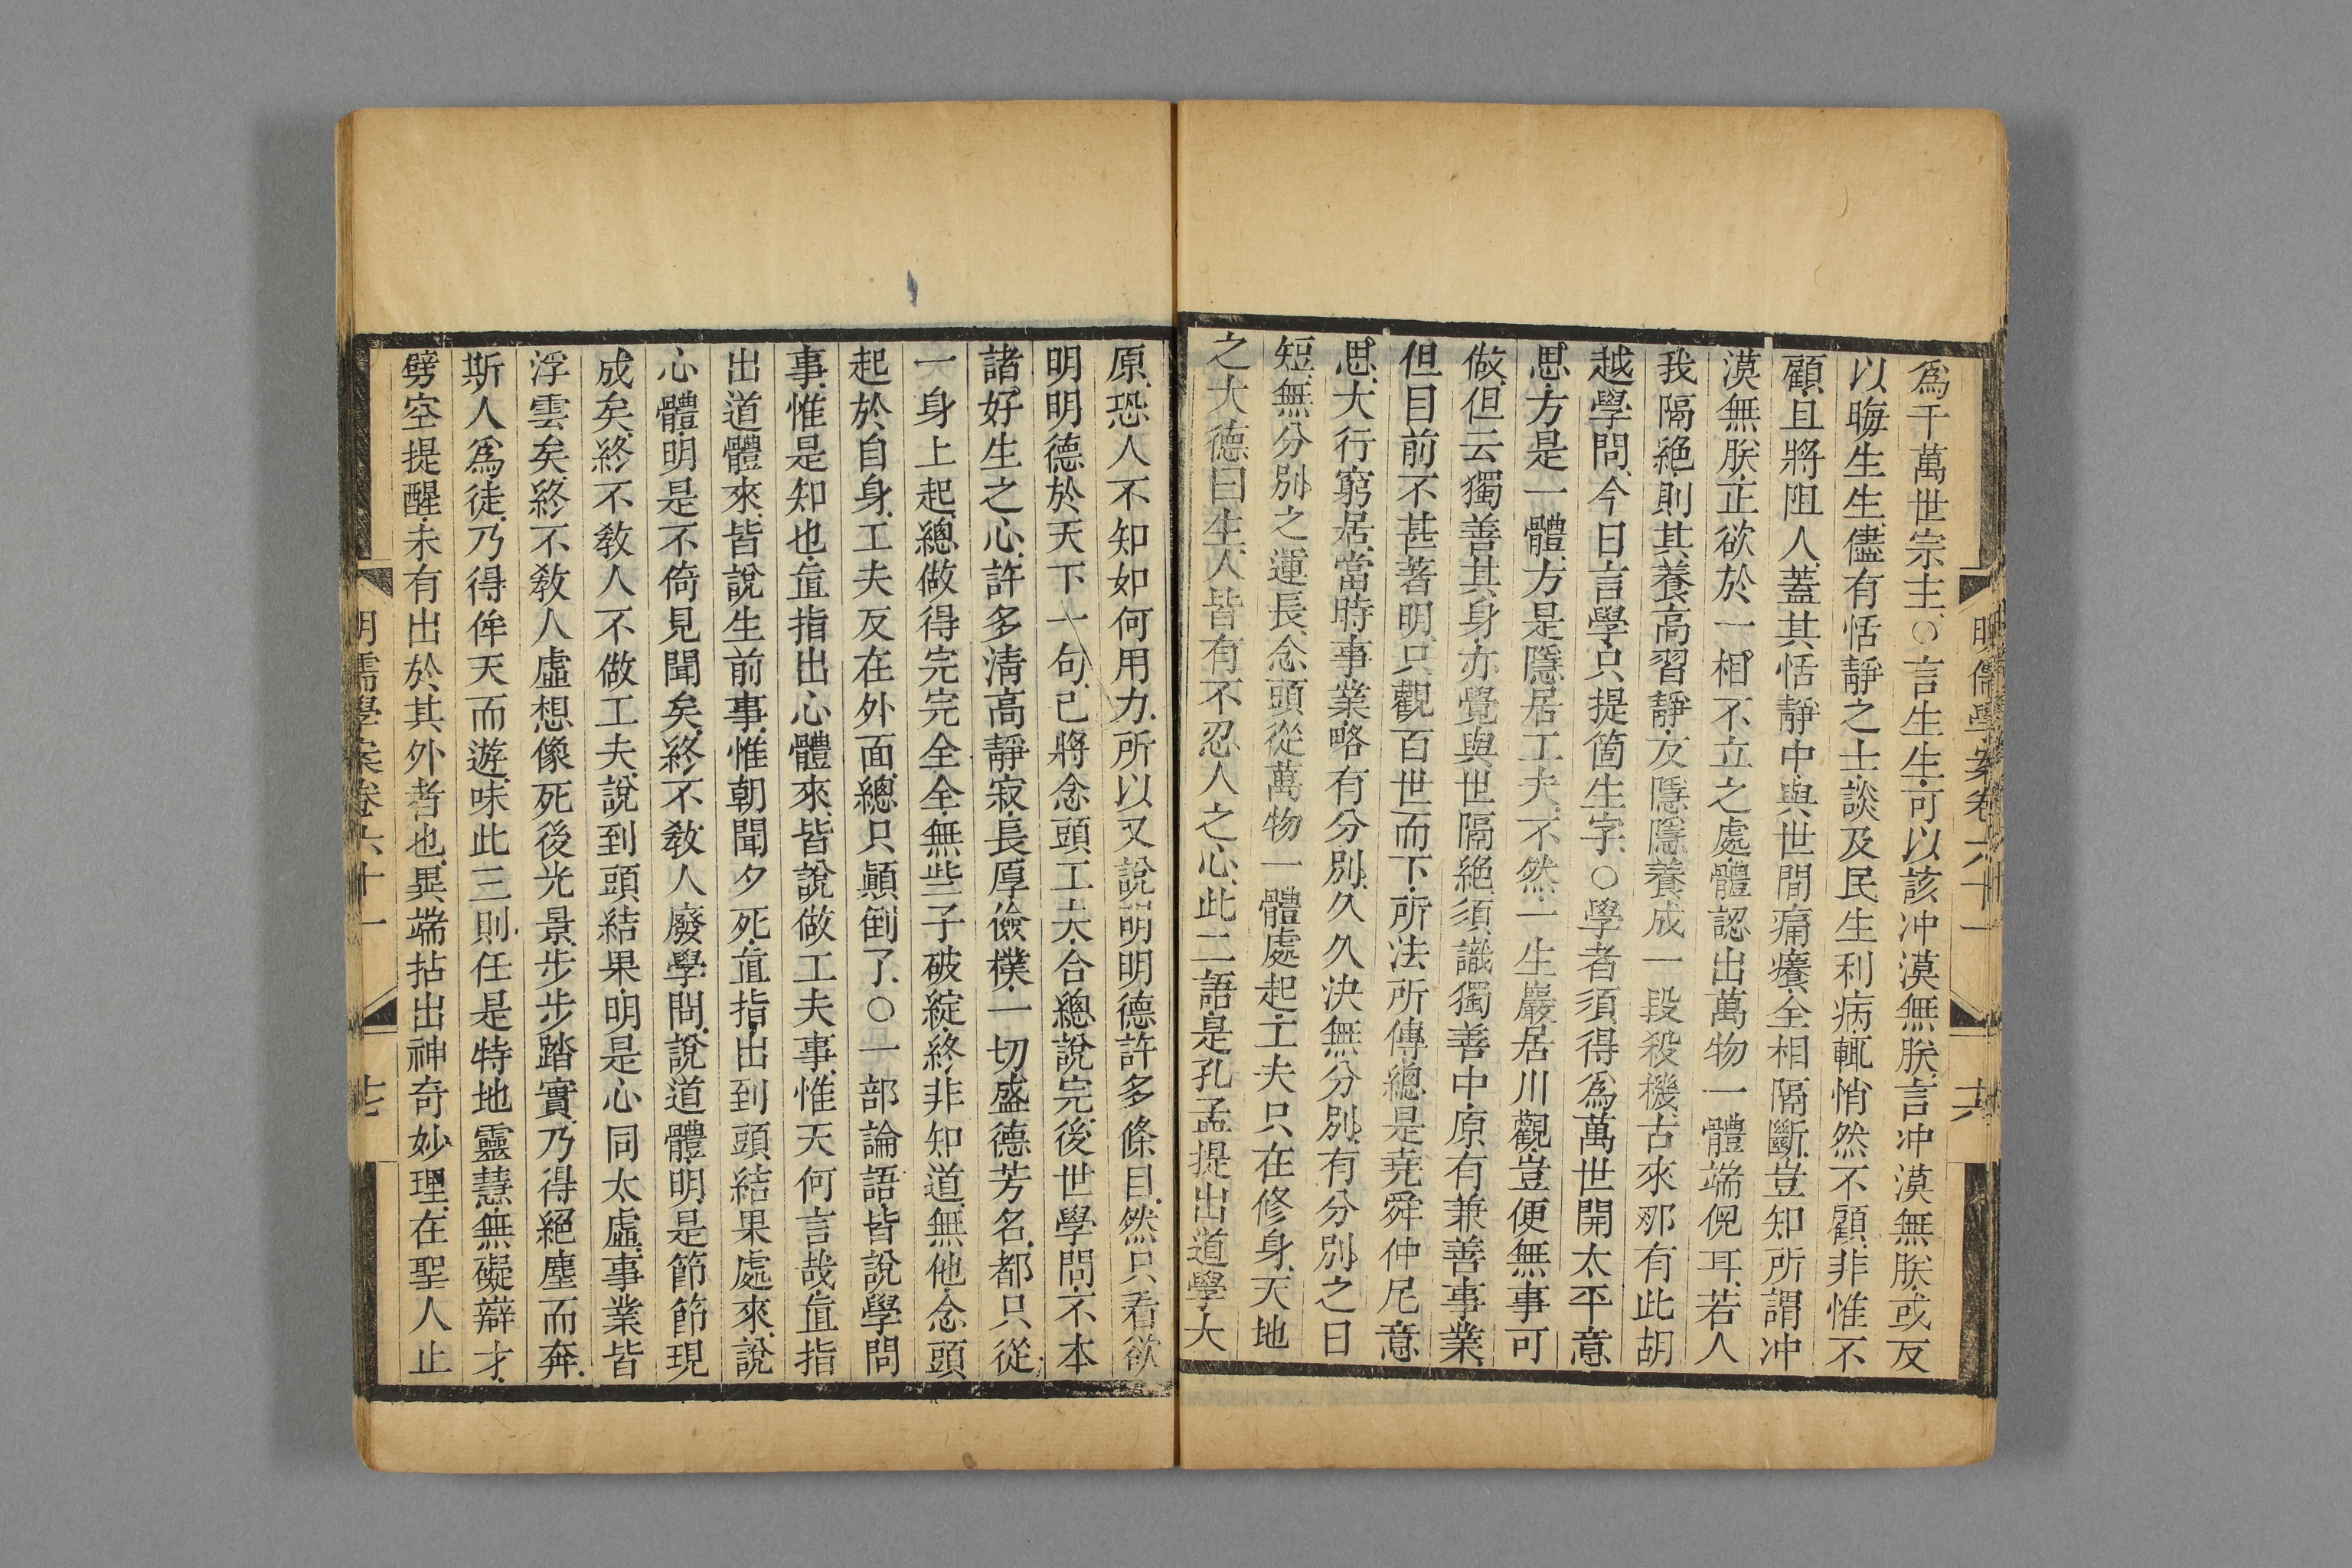 明儒學案卷六十一
十六
爲千萬世宗主、○言生生、可以該冲漠無朕、言冲漠無朕、或反
以晦生生、儘有恬靜之士、談及民生利病、輒悄然不顧、非惟不
顧、且將阻人、蓋其恬靜中、與世間痛癢、全相隔斷、豈知所謂冲
漠無朕、正欲於一相不立之處、體認出萬物一體端倪耳、若人
我隔絶、則其養高習靜、反隱隱養成一段殺機、古來那有此胡
越學問、今日言學、只提箇生字、○學者須得爲萬世開太平意
思、方是一體、方是隱居工夫、不然、一生巖居川觀、豈便無事可
做、但云獨善其身、亦覺與世隔絶、須識獨善中、原有兼善事業、
但目前不甚著明、只觀百世而下、所法所傳、總是堯舜仲尼意
思、大行窮居、當時事業、略有分別、久久決無分別、有分別之日
短、無分別之運長、念頭從萬物一體處起、工夫只在修身、天地
之大德曰生、人皆有不忍人之心、此二語、是孔孟提出道學大
原、恐人不知如何用力、所以又說明明德許多條目、然只看欲
明明德於天下一句、已將念頭工夫、合總說完、後世學問、不本
諸好生之心、許多清高靜寂、長厚儉樸、一切盛德芳名、都只從
一身上起、總做得完完全全、無些子破綻、終非知道、無他、念頭
起於自身、工夫反在外面、總只顚倒了、○一部論語、皆說學問
事、惟是知也、直指出心體來、皆說做工夫事、惟天何言哉、直指
出道體來、皆說生前事、惟朝聞夕死、直指出到頭結果處來、說
心體、明是不倚見聞矣、終不敎人廢學問、說道體、明是節節現
成矣、終不敎人不做工夫、說到頭結果、明是心同太虛、事業皆
浮雲矣、終不敎人虛想像死後光景、步步踏實、乃得絕塵而奔、
斯人爲徒、乃得侔天而遊、味此三則、任是特地靈慧、無礙辯才、
劈空提醒、未有出於其外者也、異端拈出神奇妙理、在聖人止
明儒學案卷六十一
十七